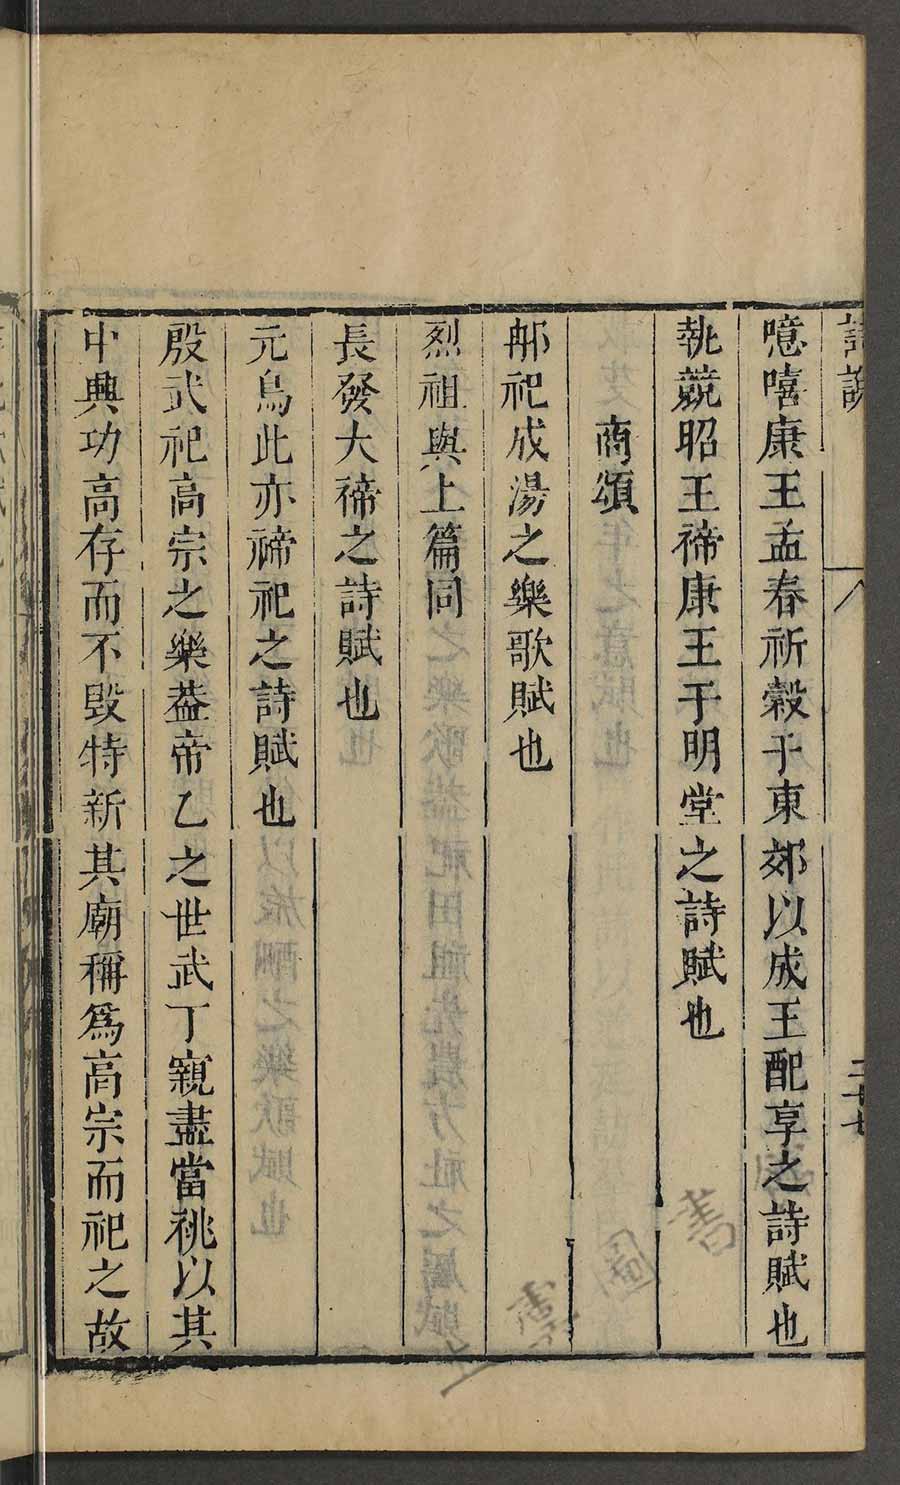 詩說
二十七
噫嘻康王孟春祈穀于東郊以成王配享之詩賦也
執競昭王禘康王于明堂之詩賦也
商頌
那祀成湯之樂歌賦也
烈祖與上篇同
長發大禘之詩賦也
元鳥此亦禘祀之詩賦也
殷武祀高宗之樂葢帝乙之世武丁親盡當祧以其
中興功高存而不毀特新其廟稱爲高宗而祀之故